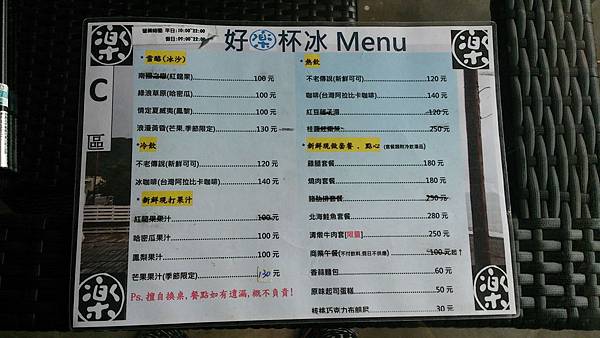 營業時間 平日:10:00~22:00
假日:09:00~22:00
好樂杯冰 Menu
樂
樂
C
區
*當酷(冰沙)
南國之戀(紅龍果)...100 元
綠浪草原(哈密瓜)...100 元
情定夏威夷(鳳梨)...100 元
浪漫黃昏(芒果,季節限定)...130 元
*冷飲
不老傳說(新鮮可可)...120 元
冰咖啡(台灣阿拉比卡咖啡)...140 元
*新鮮現打果汁
紅龍果果汁...100 元
哈密瓜果汁...100 元
鳳梨果汁...100 元
芒果果汁(季節限定)...130 元
Ps. 擅自換桌,餐點如有遺漏,概不負責!
*熱飲
不老傳說(新鮮可可)...120 元
咖啡(台灣阿拉比卡咖啡)...140 元
紅豆湯...120 元
桂圓...250 元
*新鮮現做套餐、點心
雞腿套餐...180 元
燒肉套餐...180 元
豬肋排套餐...250 元
北海鮭魚套餐...280 元
清燉牛肉套[限量]...250 元
商業午餐(不付飲料,假日不供應)...100 元起↑
香蒜麵包...60 元
原味起司蛋糕...50 元
核桃巧克力布朗尼...30 元
樂
樂